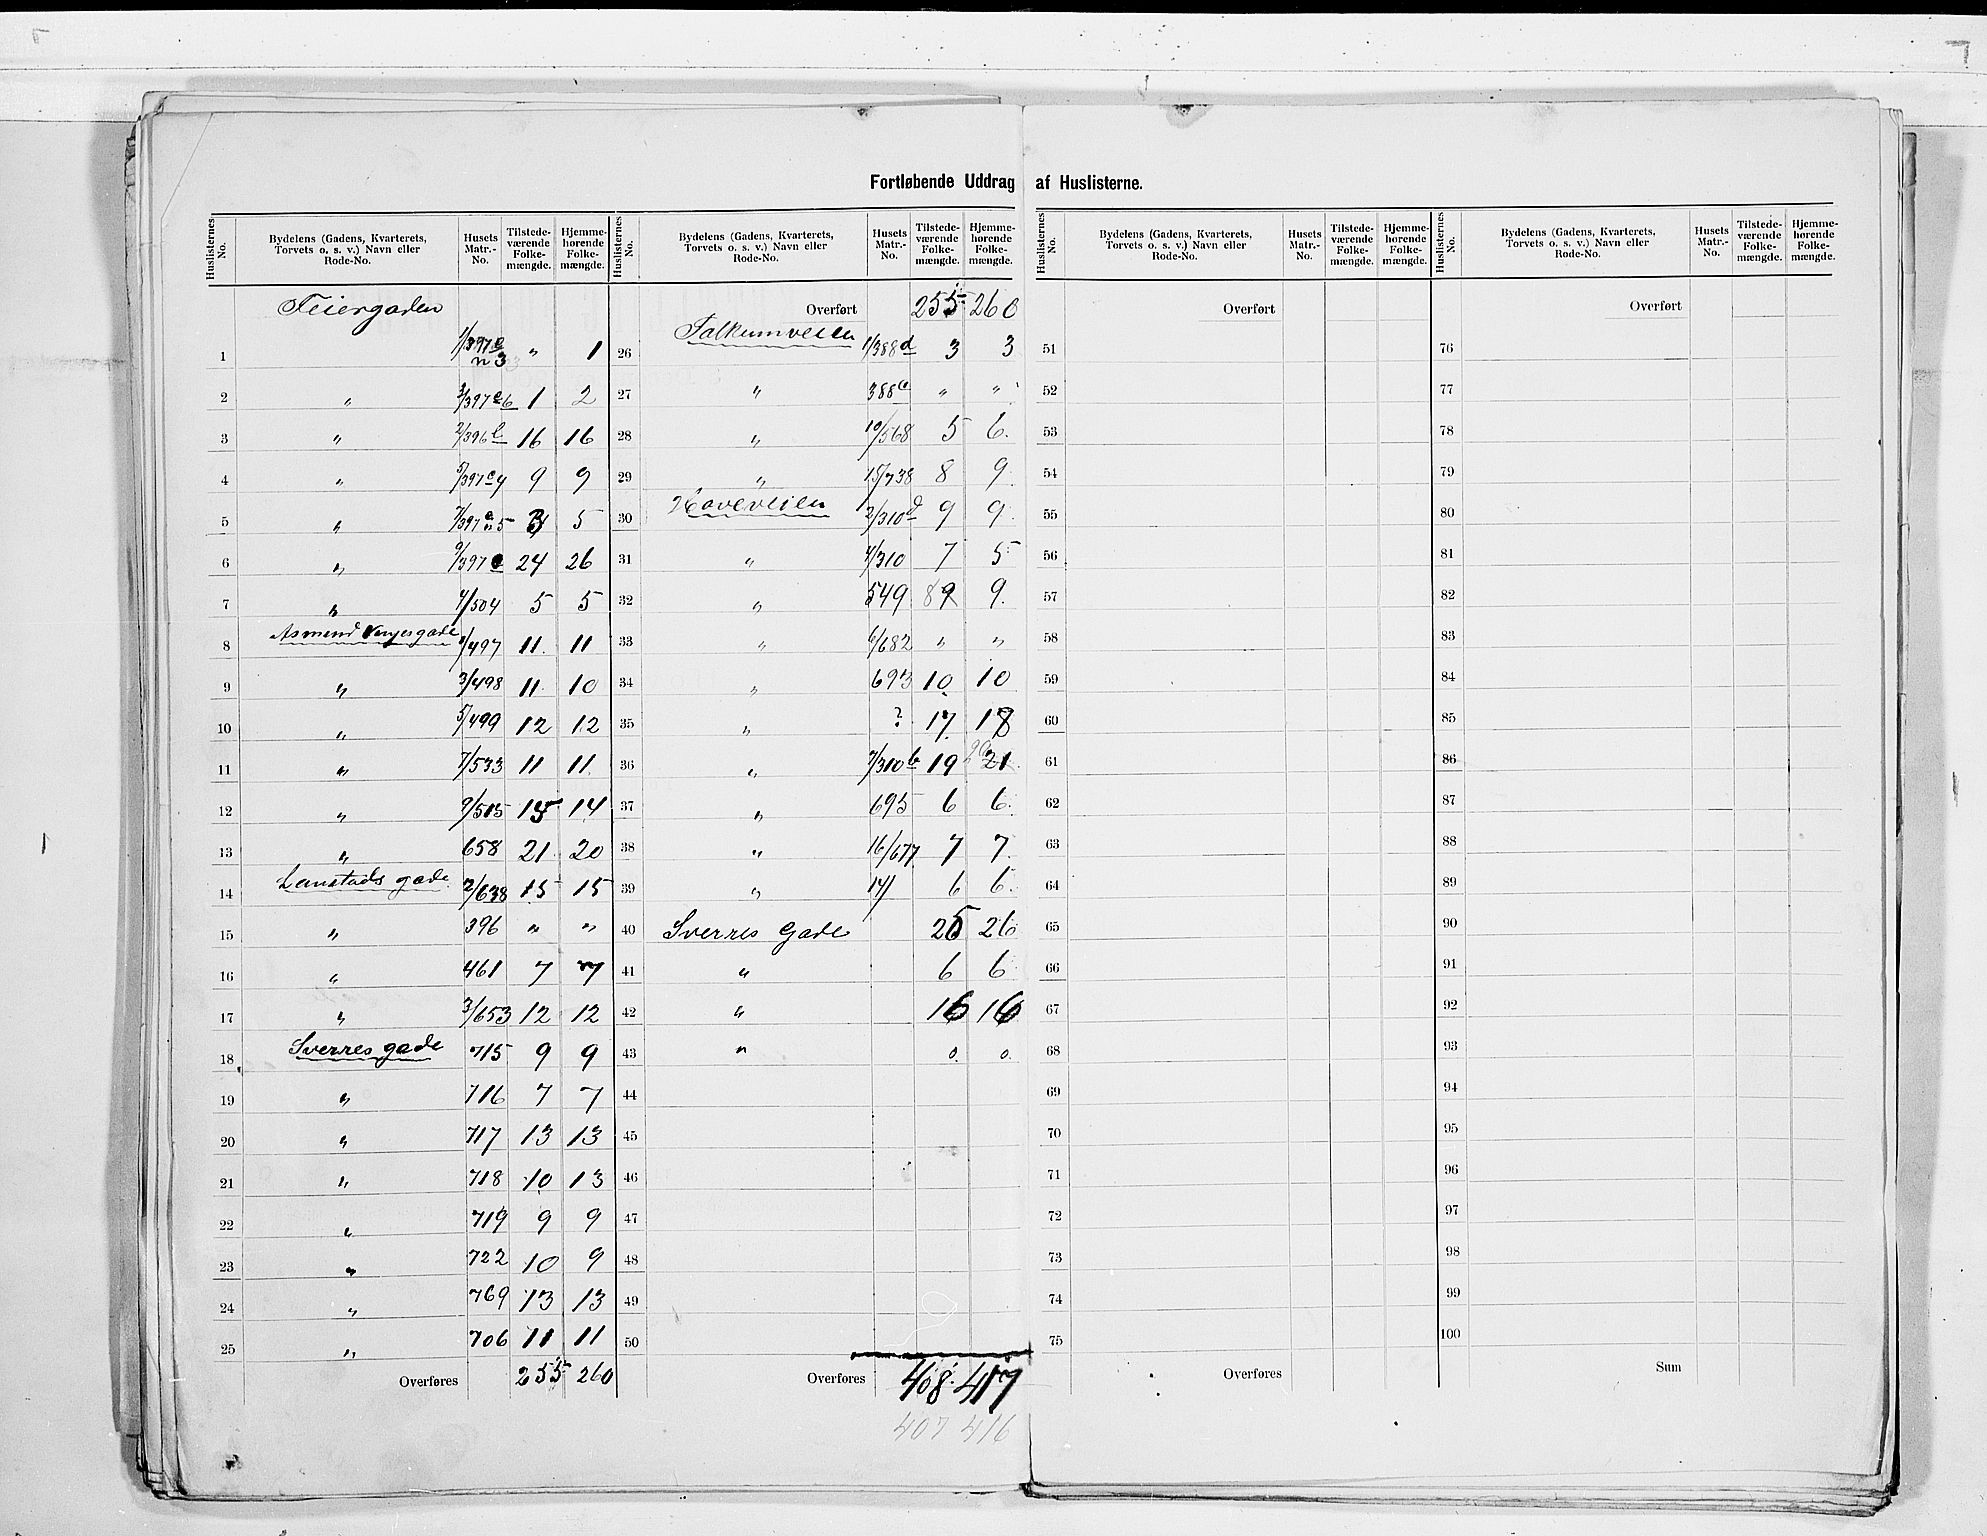 Fortløbende Uddrag af Huslisterne.
Huslisternes No. | Bydelens (Gadens, Kvarterets, Torvets o. s. v.) Navn eller Rode-No. | Husets Matr.-No. | Tilstedeværende Folkemængde. | Hjemmehørende Folkemængde.
Feiergaden
1 1/397e n 3 " 1
2 " 3/397e6 1 2
3 " 2/396b 16 16
4 " 5/397e4 9 9
5 " 7/397e n5 3 5
6 " 9/397e 24 26
7 " 4/504 5 5
8 Asmund Vinjesgade /497 11 11
9 " 3/498 11 10
10 " 5/499 12 12
11 " 7/533 11 11
12 " 9/515 15 14
13 " 658 21 20
14 Lanstads gade 2/638 15 15
15 " 396 " "
16 " 461 7 7
17 " 3/653 12 12
18 Sverres gade 715 9 9
19 " 716 7 7
20 " 717 13 13
21 " 718 10 13
22 " 719 9 9
23 " 722 10 9
24 " 769 13 13
25 " 706 11 11
Overføres 255 260
Huslisternes No. | Bydelens (Gadens, Kvarterets, Torvets o. s. v.) Navn eller Rode-No. | Husets Matr.-No. | Tilstedeværende Folkemængde. | Hjemmehørende Folkemængde.
Overført 255 260
26 Falkumveien 1/388d 3 3
27 " 388c " "
28 " 10/568 5 6
29 " 15/738 8 9
30 Haveveien 2/310d 9 9
31 " 4/310 7 5
32 " 549 89 9
33 " 6/682 " "
34 " 693 10 10
35 " ? 17 18
36 " 7/310b 19 20 21
37 " 695 6 6
38 " 16/677 7 7
39 " 14/ 6 6
40 Sverres Gade 25 26
41 " 6 6
42 " 16 16
43 " 0 0
44
45
46
47
48
49
50
Overføres 408 417
407 416
Huslisternes No. | Bydelens (Gadens, Kvarterets, Torvets o. s. v.) Navn eller Rode-No. | Husets Matr.-No. | Tilstedeværende Folkemængde. | Hjemmehørende Folkemængde.
Overført
51
52
53
54
55
56
57
58
59
60
61
62
63
64
65
66
67
68
69
70
71
72
73
74
75
Overføres
Huslisternes No. | Bydelens (Gadens, Kvarterets, Torvets o. s. v.) Navn eller Rode-No. | Husets Matr.-No. | Tilstedeværende Folkemængde. | Hjemmehørende Folkemængde.
Overført
76
77
78
79
80
81
82
83
84
85
86
87
88
89
90
91
92
93
94
95
96
97
98
99
100
Sum